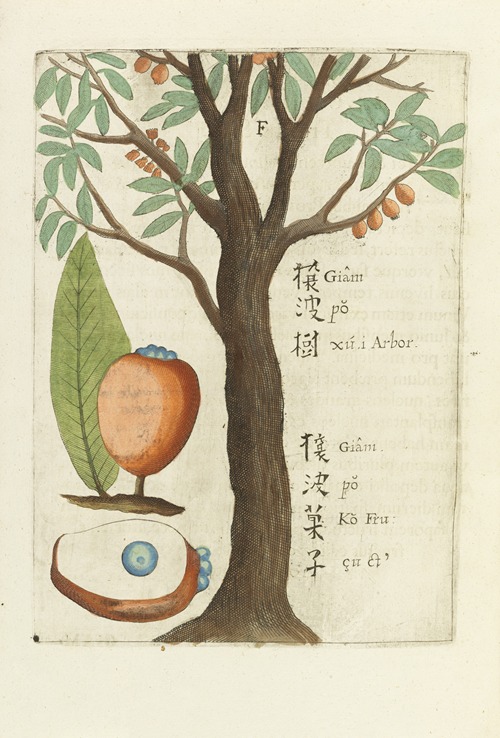 F
Giâm
波 pŏ
樹 xú .i Arbor.
Giâm.
波 pŏ
菓 Kŏ Fru:
子 çu ct'